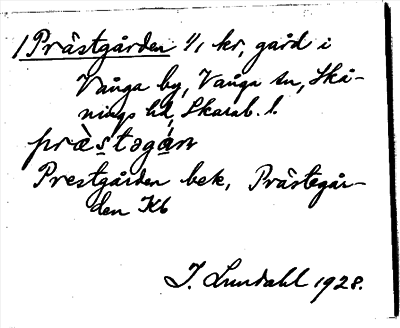 /Prästgården 1/1 kr, gård i
Vånga by, Vånga sn, Skå-
nings hd, Skarab. l.
præ̀stəgán
Prestgården bek, Prästegår-
den Kb
I. Lundahl 1928.